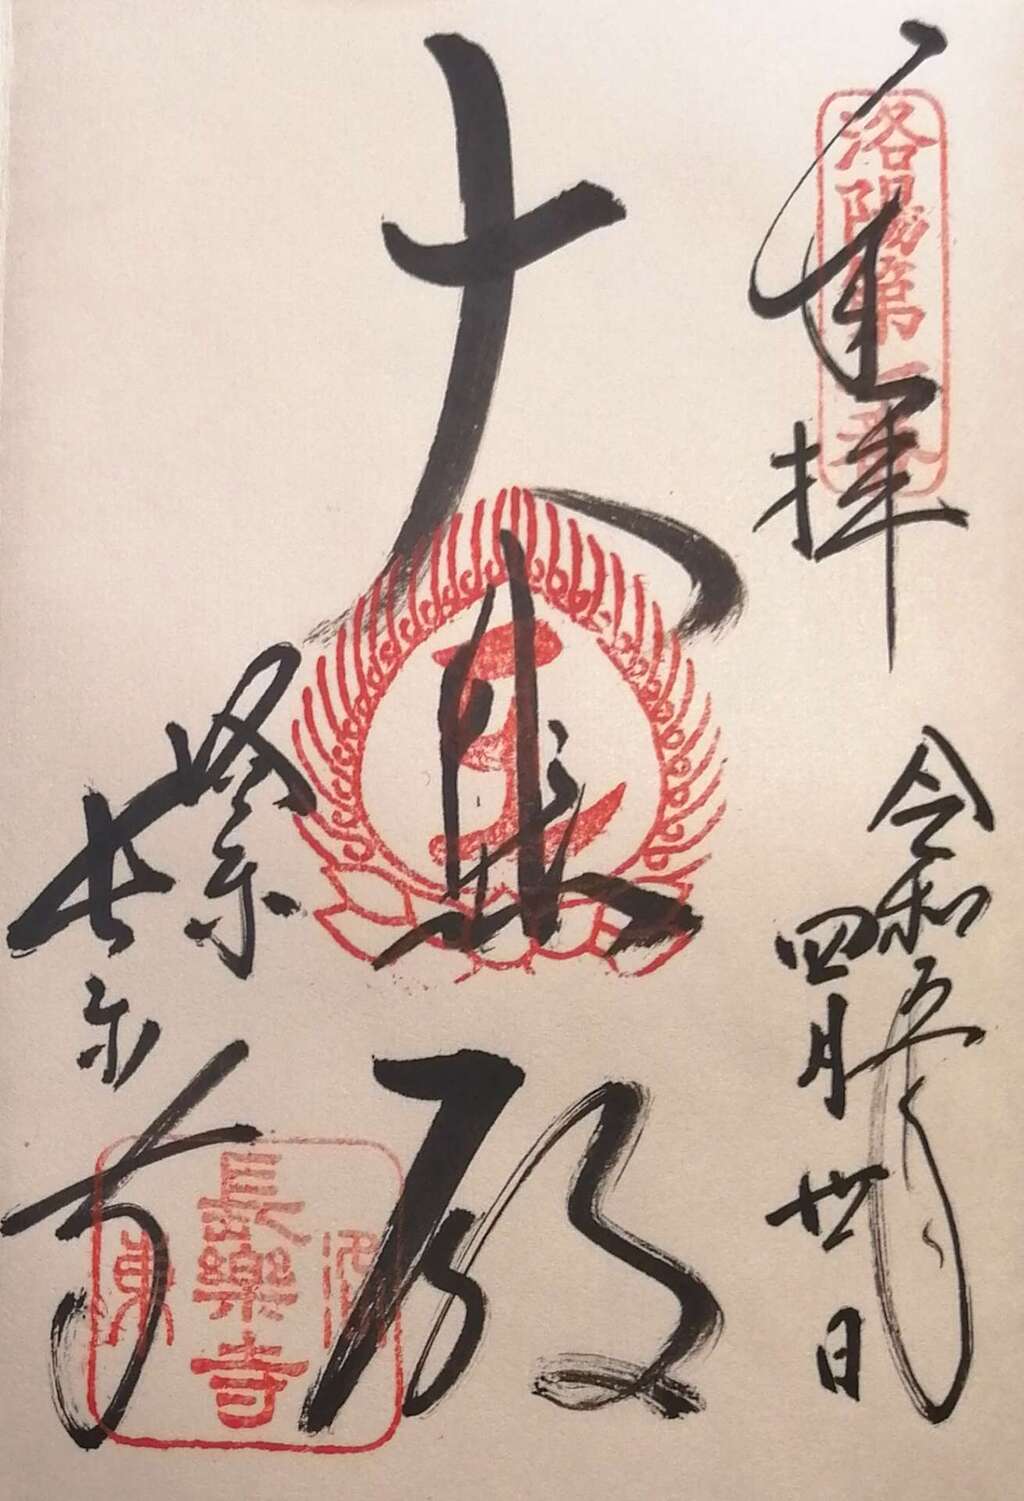 奉拝
洛陽第番
令和五年
四月廿日
大悲殿
長楽寺
洛
長樂寺
東